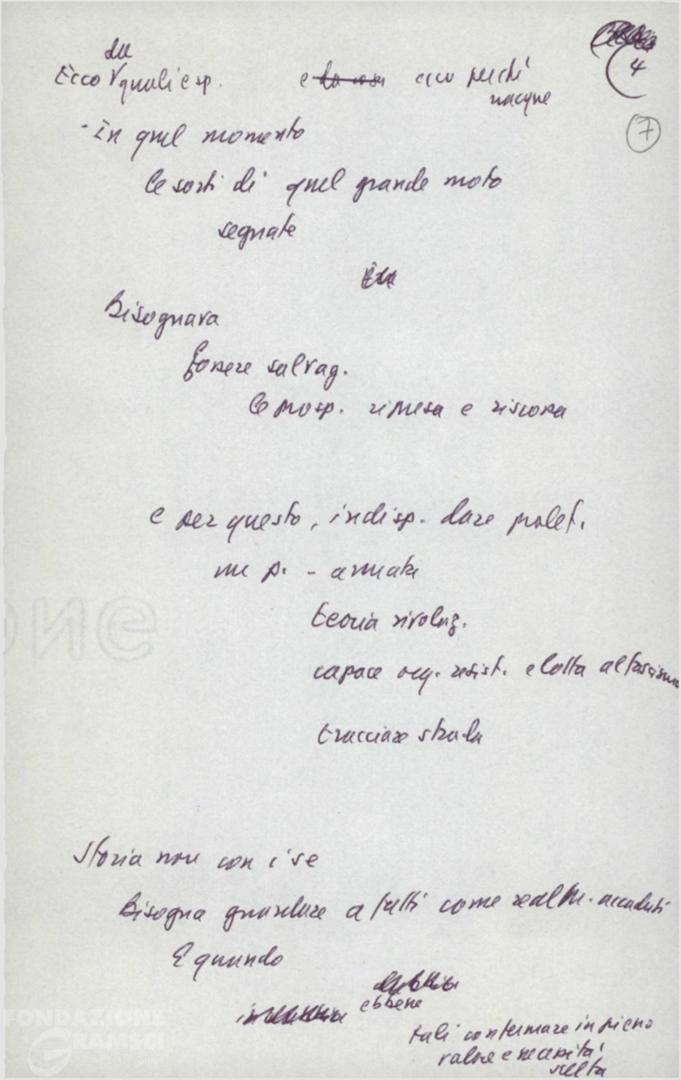 da
Ecco quali esp. e ecco perché
nacque
4
7
- in quel momento
le sorti di quel grande moto
segnate
Bisognava
porre salvag.
le prosp. ripresa e riscossa
e per questo, indisp. dare prolet.
un p. - armato
teoria rivoluz.
capace org. resist. e lotta al fascismo
tracciare strada
Storia non con i se
Bisogna guardare a fatti come realm. accaduti
E quando
ebbene
tali confermare in pieno
valore e necessità
scelta
FONDAZIONE
GRAMSCI